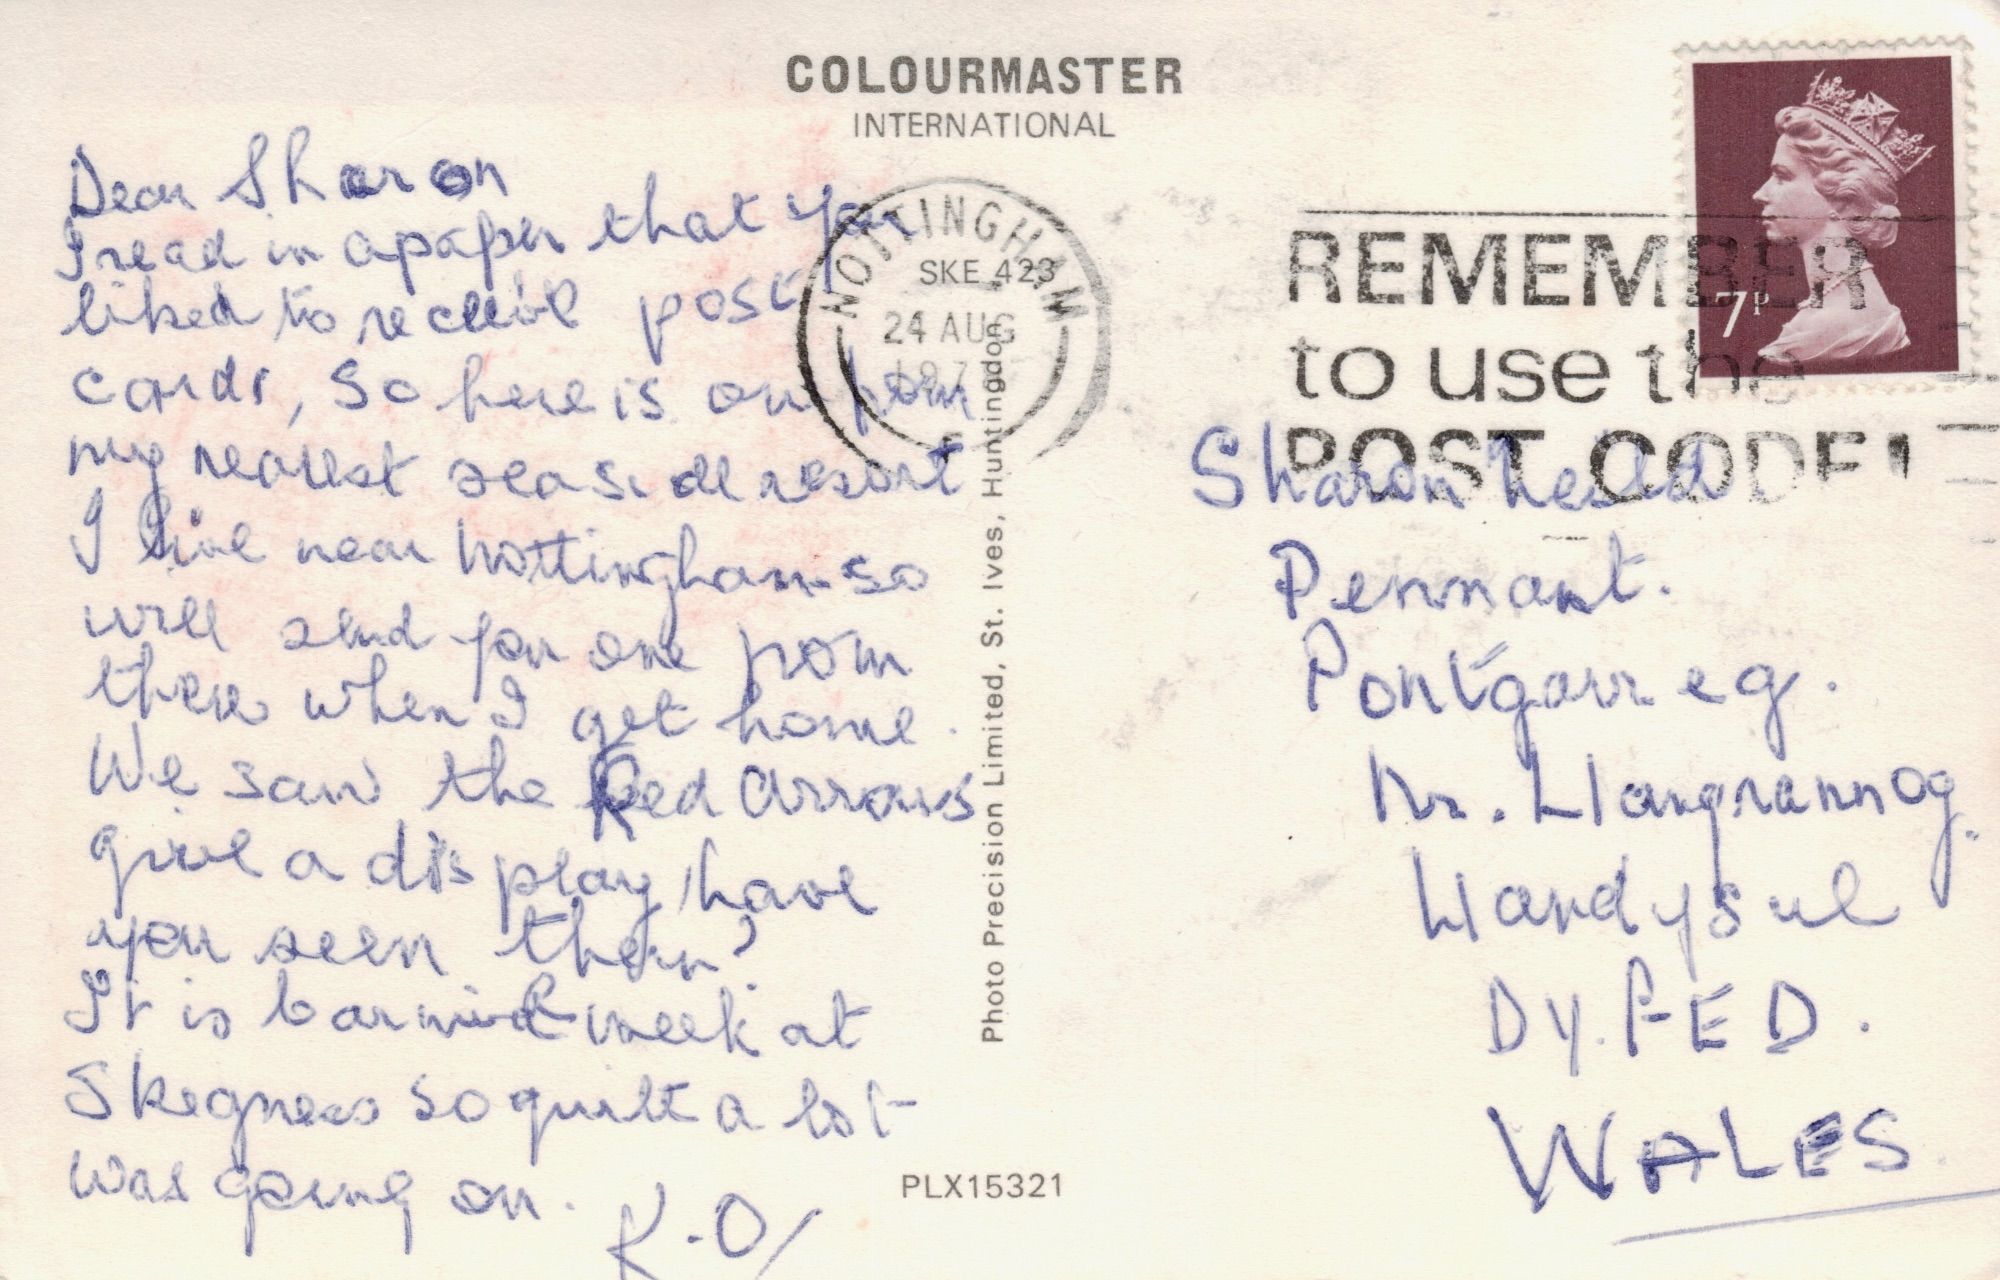 COLOURMASTER
INTERNATIONAL
Dear Sharon
I read in a paper that you
liked to receive post
cards, So here is one from
my nearest seaside resort
I live near Nottingham so
will send you one from
there when I get home.
We saw the Red Arrows
give a display, have
you seen them?
It is carnival week at
Skegness so quite a lot
was going on.
K.O/
NOTTINGHAM
24 AUG
197
SKE 423
REMEMBER
to use the
POST CODE!
7P
Photo Precision Limited, St. Ives, Huntingdon
Sharon
Pennant.
Pontgarreg.
Nr. Llangrannog.
Llandysul
DY.FED.
WALES
PLX15321